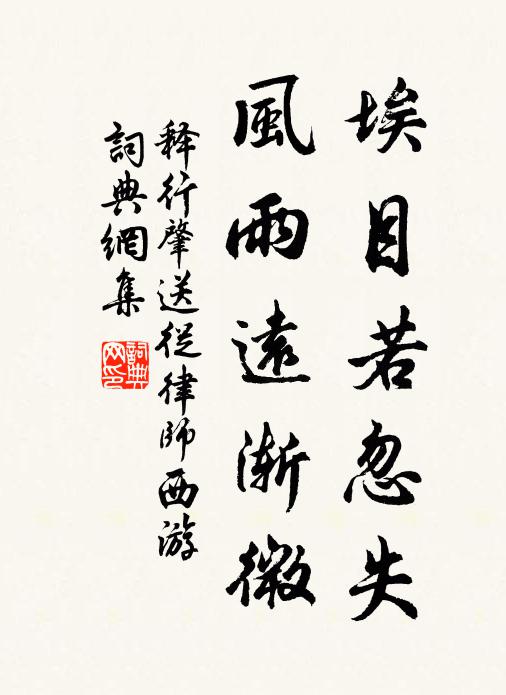 埃目若忽失
風雨遠漸微
释行肇送從律師西游
詞典網集
詞典
网印